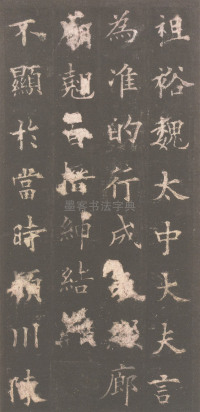 祖裕魏太中大夫言
為准的行成廊
剋紳結
不顯於當時川陳
墨客书法字典